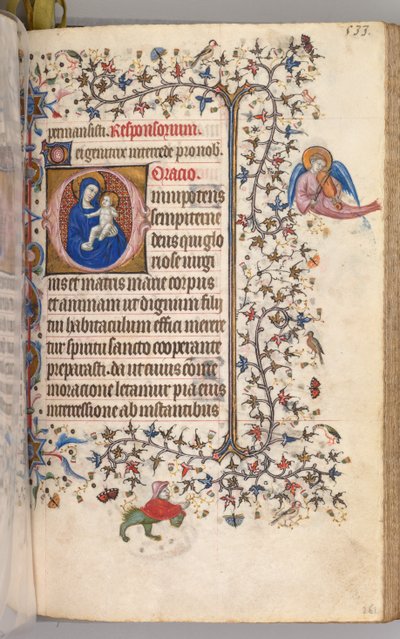 533.
permansisti. Responsorium.
Dei genitrix intercede pro nob.
Oratio.
Omnipotens
sempiterne
deus qui glo
riose virgi
nis et matris marie corpus
et animam ut dignum filij
tui habitaculum effici mere
tur spiritu sancto cooperante
preparasti. da ut cuius come
moracione letamur pia eius
intercessione ab instantibus
261